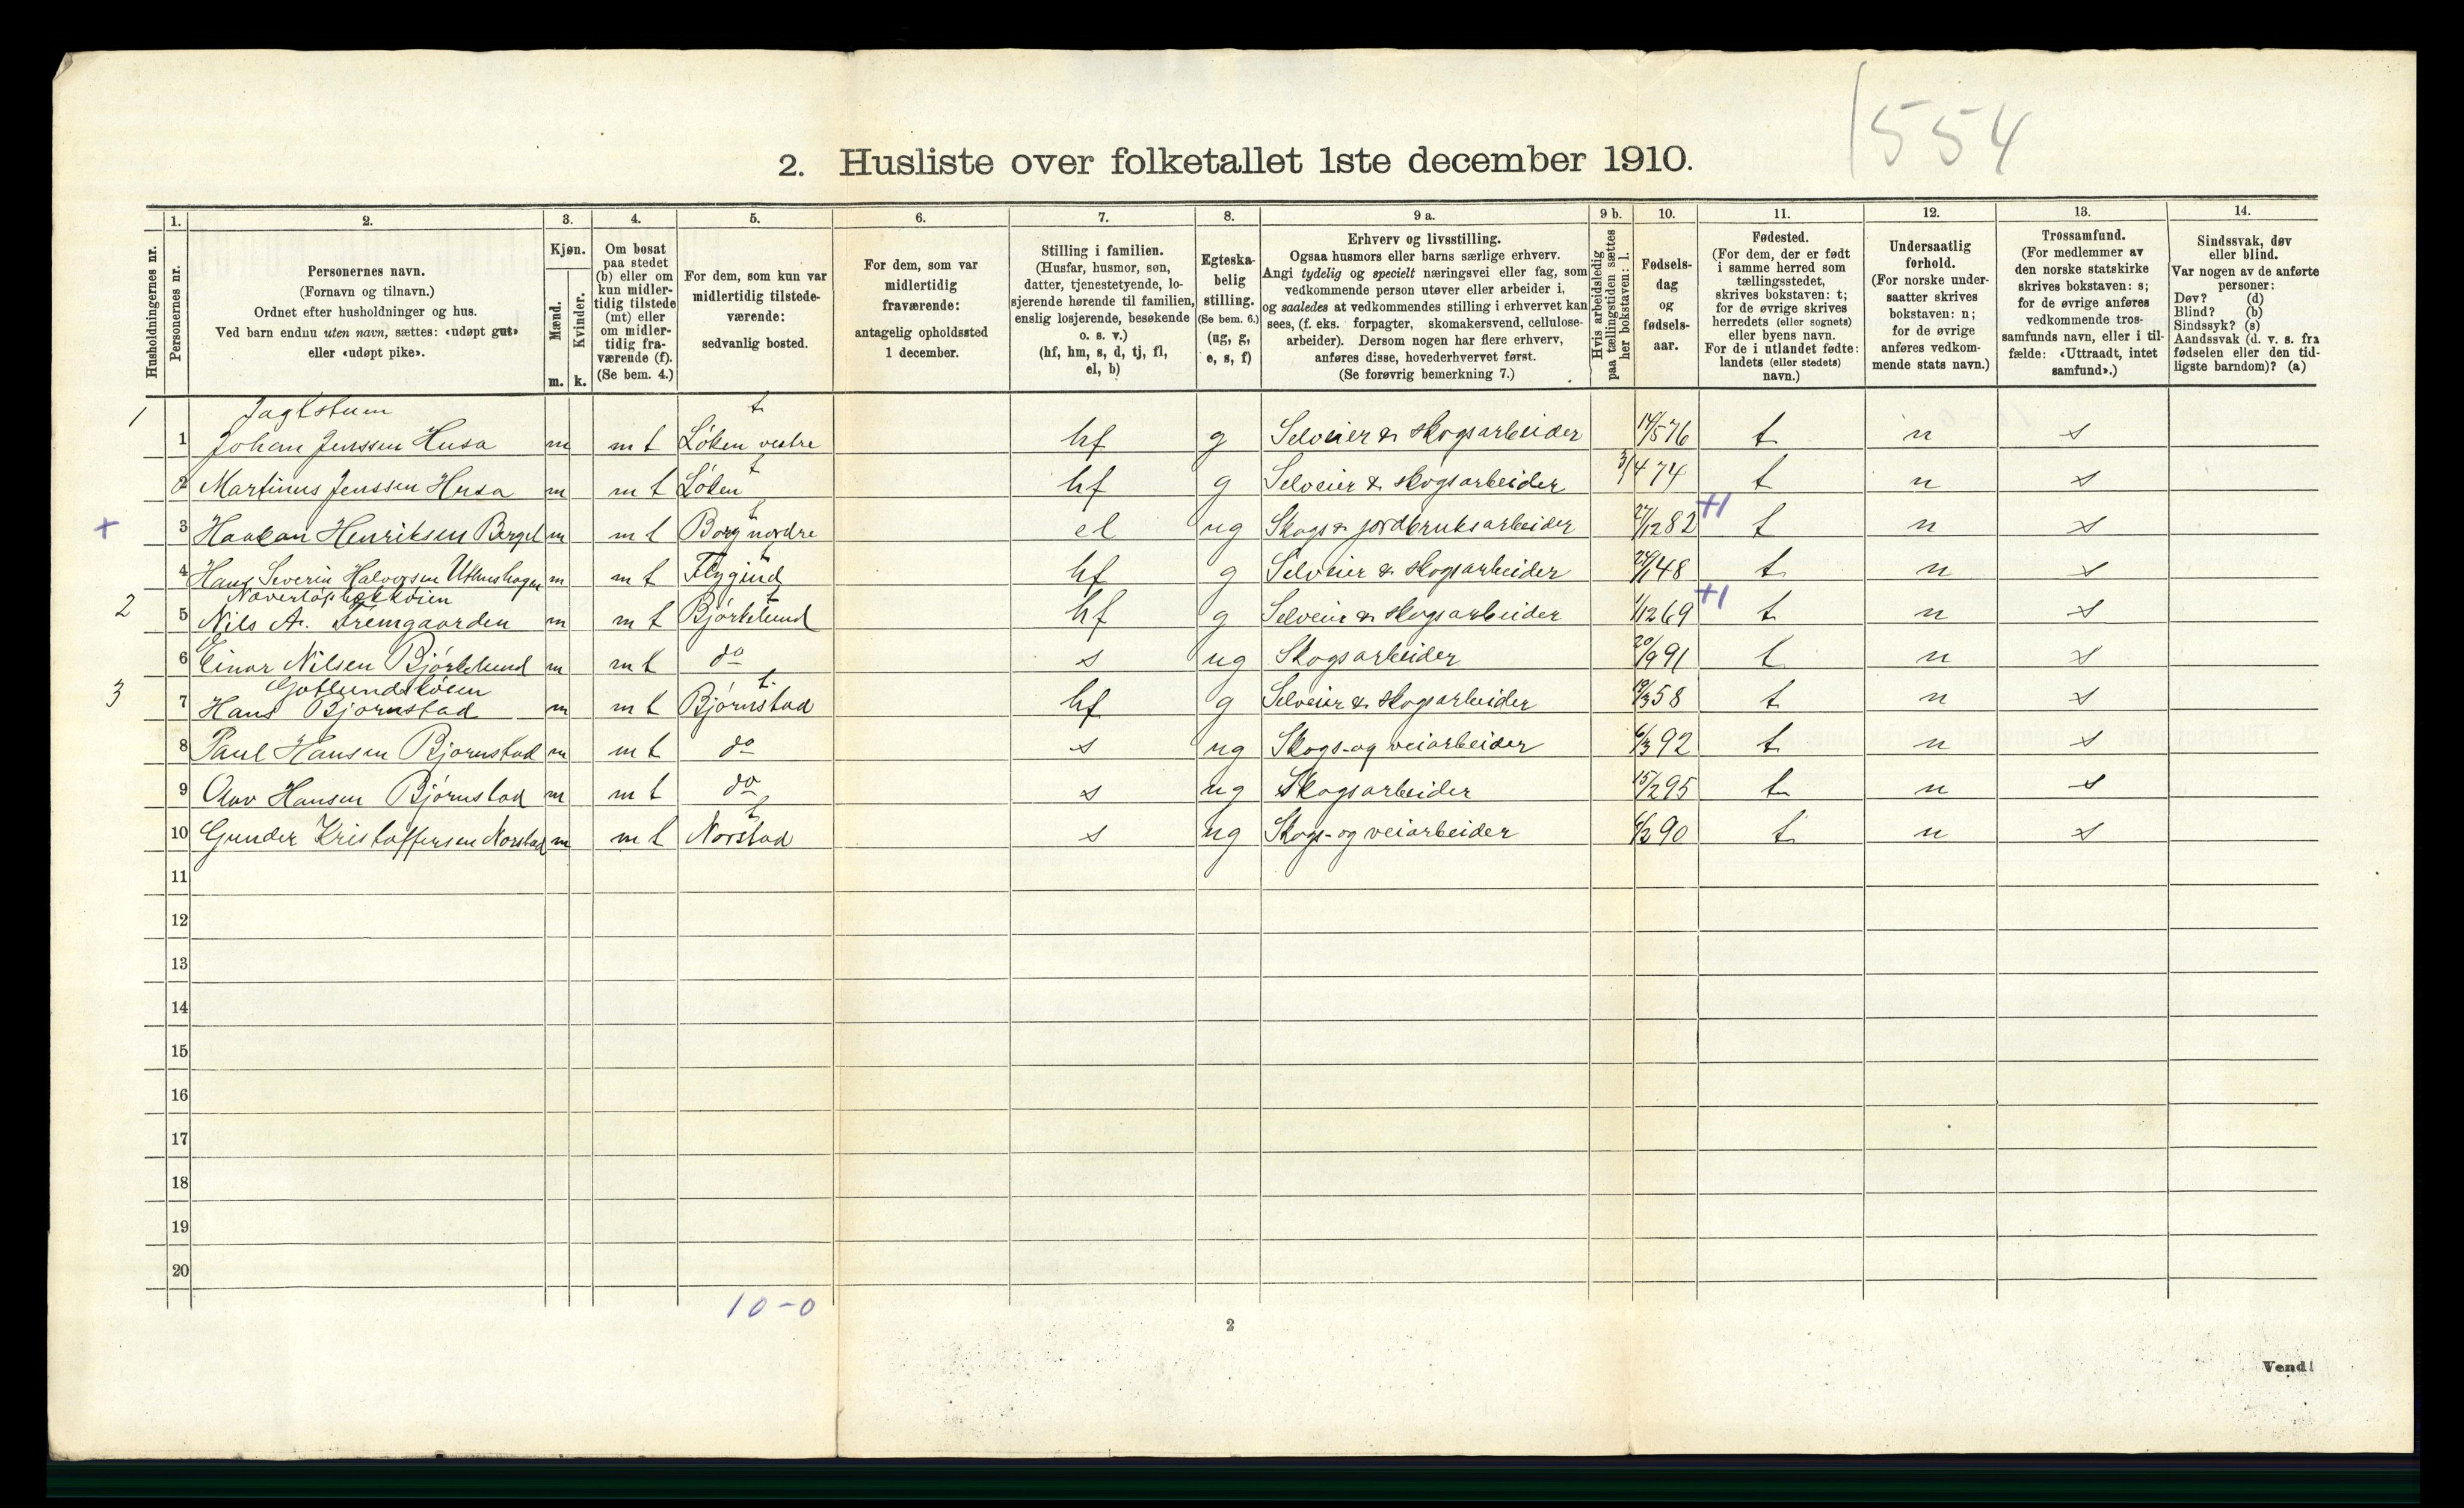 1554
2. Husliste over folketallet 1ste december 1910.
Husholdningernes nr.
1. Personernes nr.
2. Personernes navn.
(Fornavn og tilnavn.)
Ordnet efter husholdninger og hus.
Ved barn endnu uten navn, sættes: «udøpt gut»
eller «udøpt pike».
3. Kjøn.
Mænd. m.
Kvinder. k.
4. Om bosat
paa stedet
(b) eller om
kun midler-
tidig tilstede
(mt) eller
om midler-
tidig fra-
værende (f).
(Se bem. 4.)
5. For dem, som kun var
midlertidig tilstede-
værende:
sedvanlig bosted.
6. For dem, som var
midlertidig
fraværende:
antagelig opholdssted
1 december.
7. Stilling i familien.
(Husfar, husmor, søn,
datter, tjenestetyende, lo-
sjerende hørende til familien,
enslig losjerende, besøkende
o. s. v.)
(hf, hm, s, d, tj, fl,
el, b)
8. Egteska-
belig
stilling.
(Se bem. 6.)
(ug, g,
e, s, f)
9 a. Erhverv og livsstilling.
Ogsaa husmors eller barns særlige erhverv.
Angi tydelig og specielt næringsvei eller fag, som
vedkommende person utøver eller arbeider i,
og saaledes at vedkommendes stilling i erhvervet kan
sees, (f. eks. forpagter, skomakersvend, cellulose-
arbeider). Dersom nogen har flere erhverv,
anføres disse, hovederhvervet først.
(Se forøvrig bemerkning 7.)
9 b. Hvis arbeidsledig
paa tællingstiden sættes
her bokstaven: l.
10. Fødsels-
dag
og
fødsels-
aar.
11. Fødested.
(For dem, der er født
i samme herred som
tællingsstedet,
skrives bokstaven: t;
for de øvrige skrives
herredets (eller sognets)
eller byens navn.
For de i utlandet fødte:
landets (eller stedets)
navn.)
12. Undersaatlig
forhold.
(For norske under-
saatter skrives
bokstaven: n;
for de øvrige
anføres vedkom-
mende stats navn.)
13. Trossamfund.
(For medlemmer av
den norske statskirke
skrives bokstaven: s;
for de øvrige anføres
vedkommende tros-
samfunds navn, eller i til-
fælde: «Uttraadt, intet
samfund».)
14. Sindssvak, døv
eller blind.
Var nogen av de anførte
personer:
Døv? (d)
Blind? (b)
Sindssyk? (s)
Aandssvak (d. v. s. fra
fødselen eller den tid-
ligste barndom)? (a)
1 Jagtstuen t
1 Johan Jenssen Husa m mt Løken vestre hf g Selveier & skogsarbeider 14/5 76 t n s
t
2 Martinus Jenssen Husa m mt Løken hf g Selveier & skogsarbeider 3/4 74 t n s
t +1
+ 3 Haakan Henriksen Berget m mt Borg nordre el ug Skogs & jordbruksarbeider 27/12 82 t n s
t
4 Hans Severin Halvorsen m mt Flygind hf g Selveier & skogsarbeider 24/1 48 t n s
2 t +1
5 Nils A. Fremgaarden m mt Bjørkelund hf g Selveier & skogsarbeider 1/12 69 t n s
6 Einar Nilsen Bjørkelund m mt do s ug Skogsarbeider 20/9 91 t n s
3 Gotlundskøien t.
7 Hans Bjørnstad m mt Bjørnstad hf g Selveier & skogsarbeider 19/3 58 t n s
8 Paul Hansen Bjørnstad m mt do s ug Skogs- og veiarbeider 6/3 92 t n s
9 Olav Hansen Bjørnstad m mt do s ug Skogsarbeider 15/2 95 t n s
t
10 Gunder Kristoffersen Norstad m mt Norstad s ug Skogs- og veiarbeider 6/2 90 t n s
11
12
13
14
15
16
17
18
19
20
10-0
2
Vend!